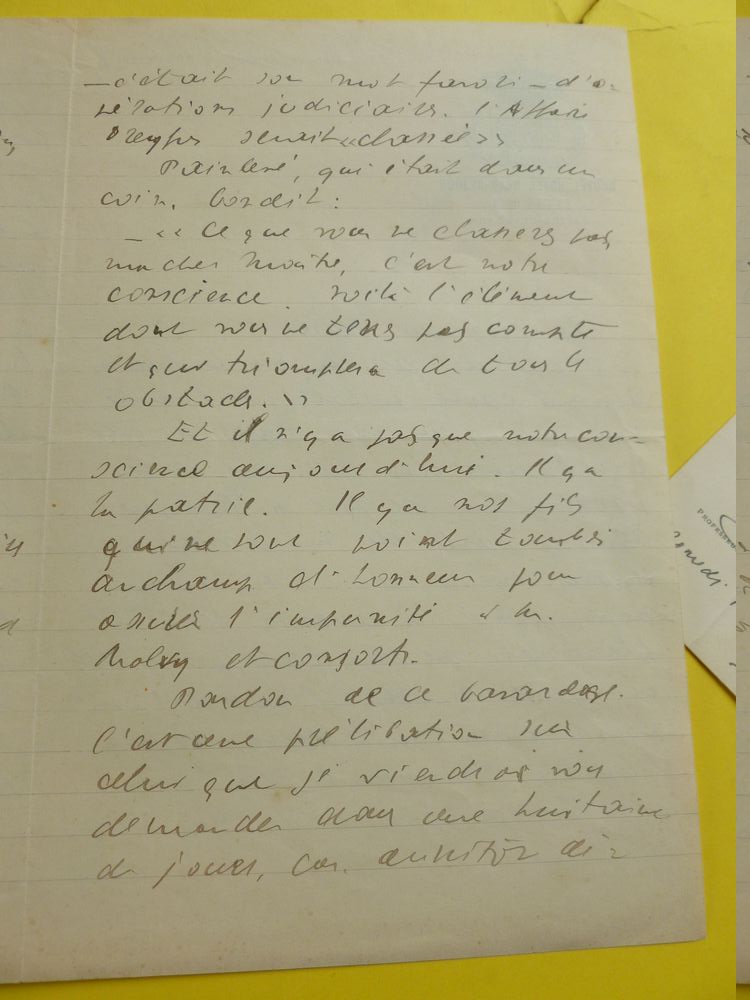 — c'était son mot favori — d'o-
pérations judiciaires. l'Affaire
Dreyfus serait «classée»
Painlevé, qui était dans un
coin, bondit :
— «Ce que vous ne classerez pas
mon cher Maître, c'est notre
conscience. Voilà l'élément
dont vous ne tenez pas compte
et qui triomphera de tous les
obstacles.»
Et il n'y a pas que notre con-
science aujourd'hui. Il y a
la patrie. Il y a nos fils
qui ne sont point tombés
au champ d'honneur pour
assurer l'impunité à M.
Malvy et consorts.
Pardon de ce bavardage.
C'est une prélibation sur
celui que je viendrai vous
demander dans une huitaine
de jours, car aussitôt dé-
PROFESSEUR